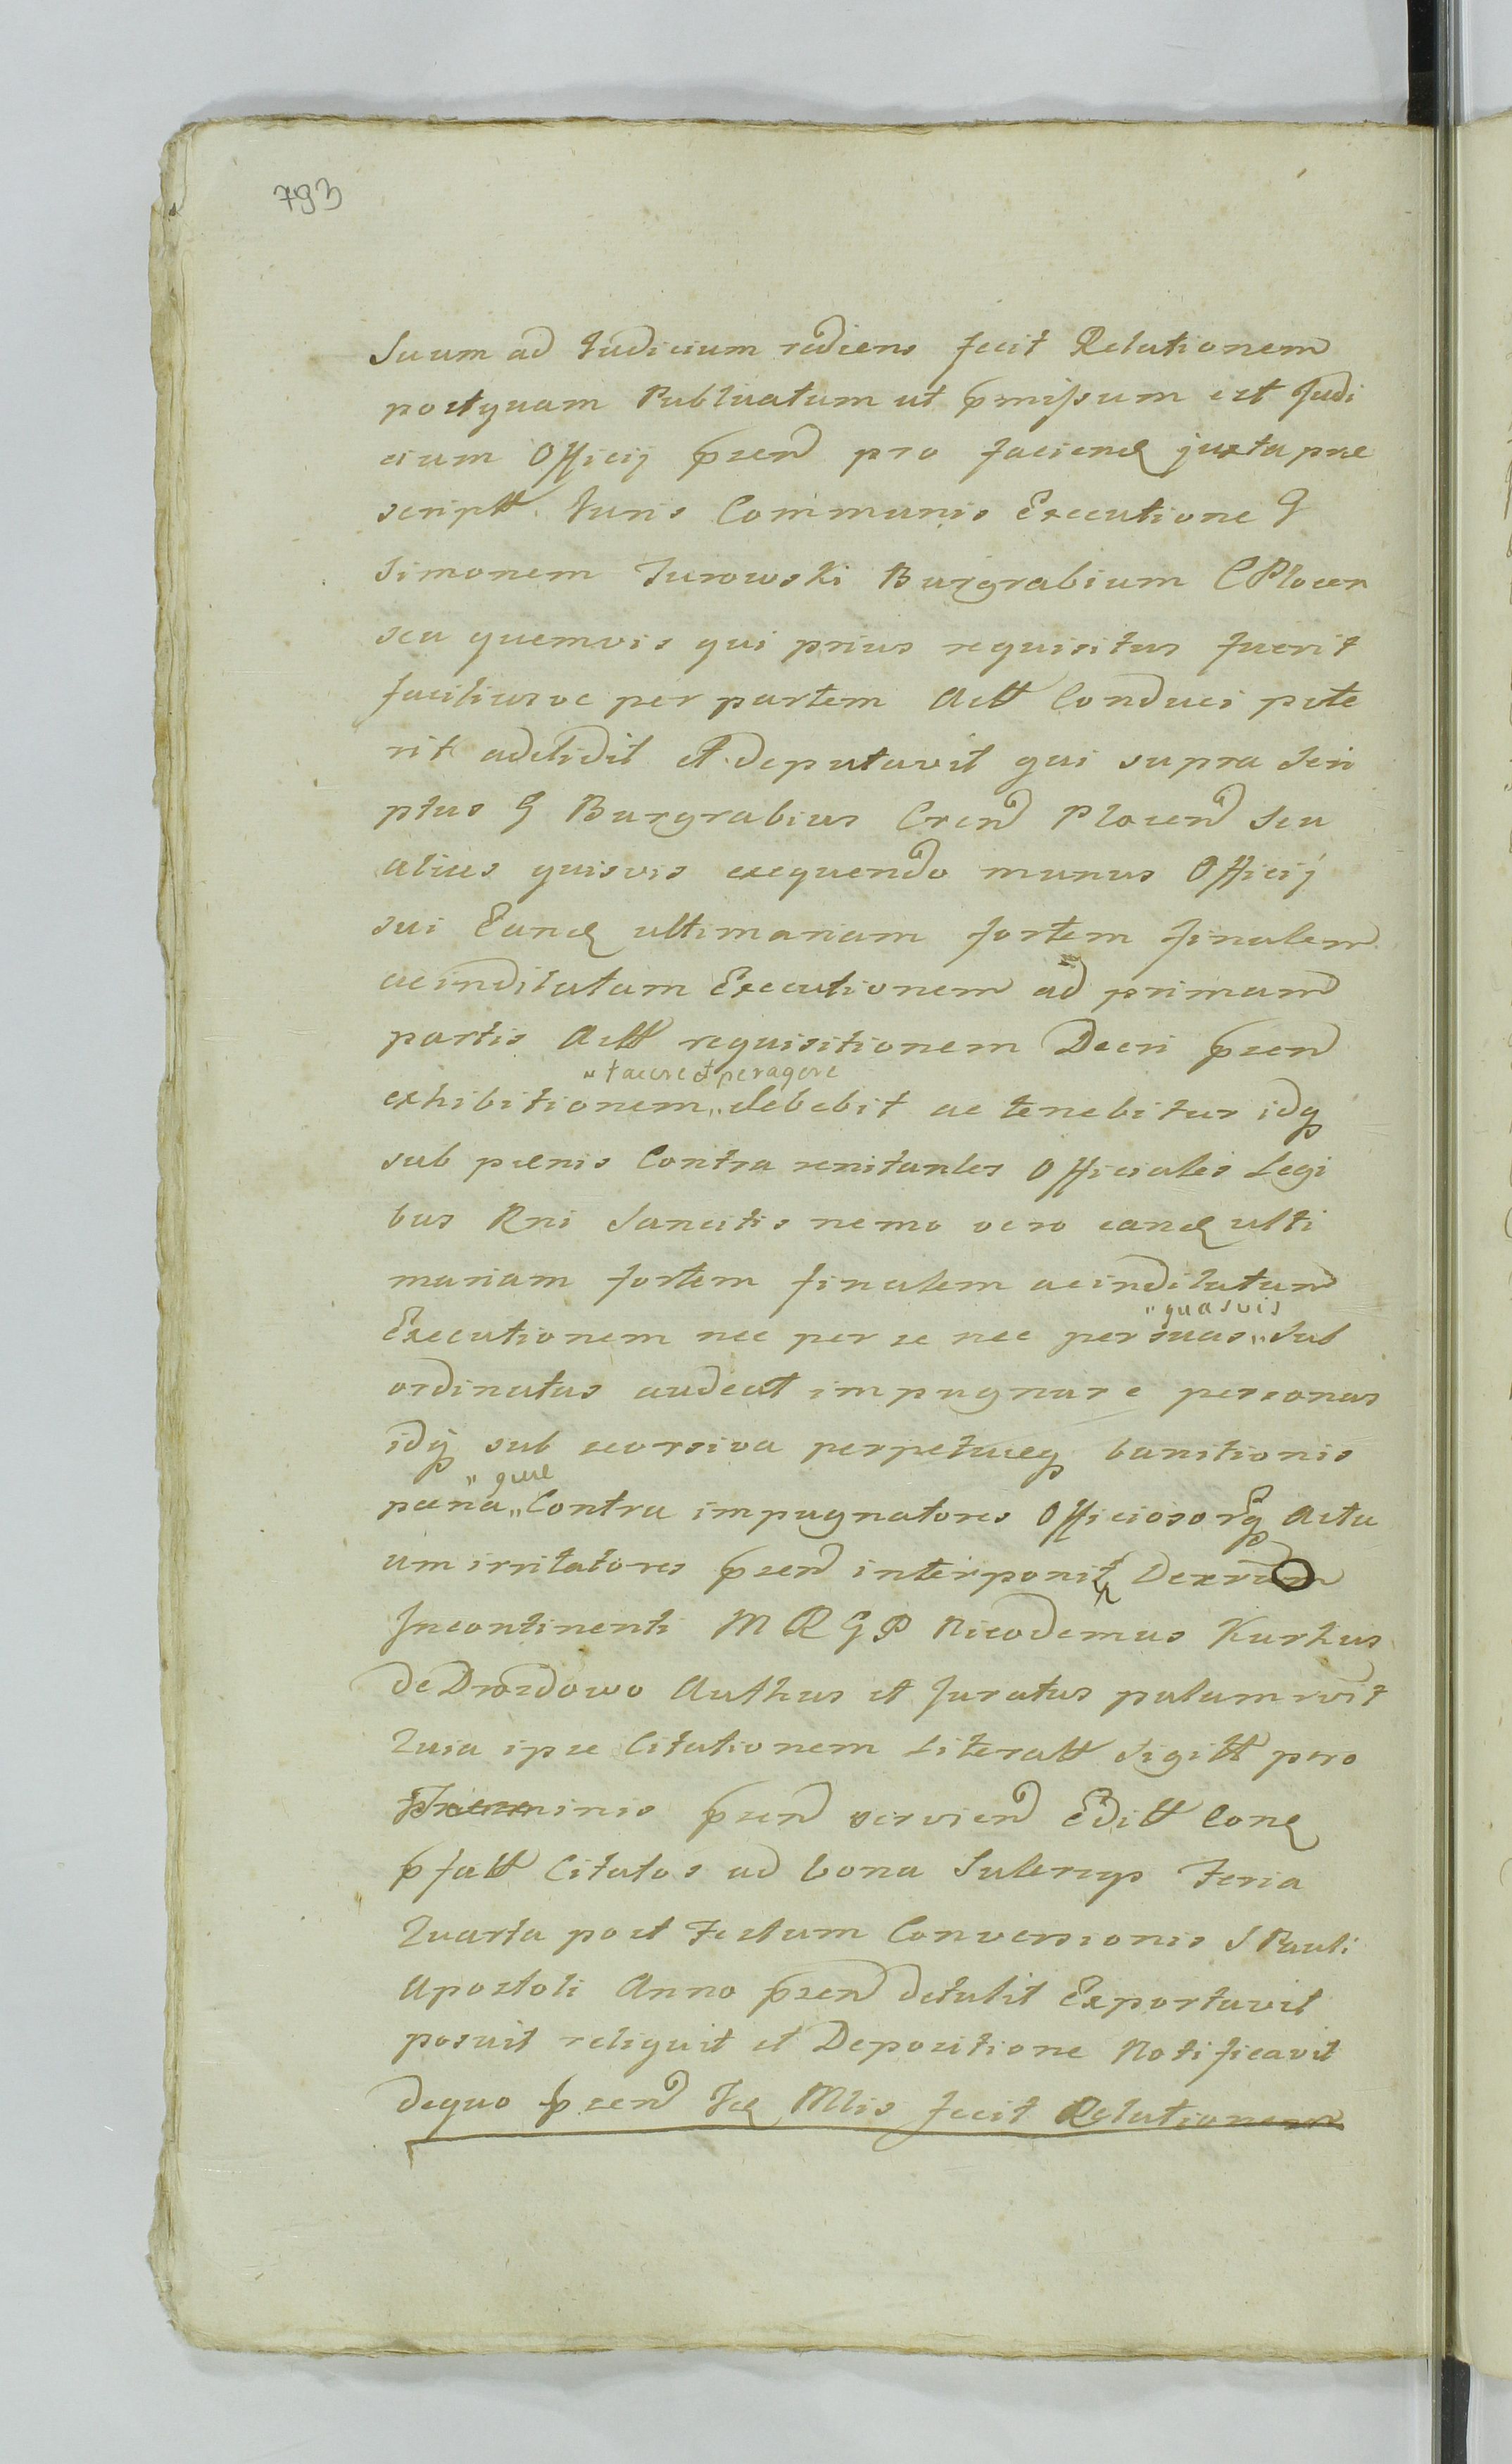 793
Suum ad Judicium rediens fecit Relationem
postquam Publicatum ut pmissum est Judi
cium Officij pzen pro faciend juxta prae
scriptt Juris Communis Executione G
Simonem Jurowski Burgrabium C Plocen
seu quemvis qui prius requisitus fuerit
faciliusve per partem Actt Conduci pote
rit addidit et deputavit qui supra scri
ptus G Burgrabius Cren Plocen seu
alius quisvis exequendo munus Officij
sui Eand ultimariam fortem finalem
ac indilatam Executionem ad primam
partis Actt requisitionem Decri pzen
„facere et peragere
exhibitionem „ debebit ac tenebitur idq
sub paenis Contra renitantes Officiales Legi
bus Rni Sancitis nemo vero eand ulti
mariam fortem finalem ac indilatam
„quasvis
Executionem nec per se nec per suas „ sub
ordinatas audeat impugnare personas
idq sub seorsiva perpetuaeq banitionis
„quae
paena „ Contra impugnatores Officiosorq Actu
um irritatores pzen interponit Decrum
Incontinenti M R G P Nicodemus Kurhus
de Drozdowo Authus et Juratus palam rvit
Quia ipse Citationem Literatt Sigitt pro
Terminis pzen servien Editt Cond
pfatt Citatos ad bona Suleryp Feria
Quarta post Festum Conversionis S Pauli
Apostoli Anno pzen detulit Exportavit
posuit reliquit et Depositione Notificavit
dequo pzen Jud Mlis fecit Relationem